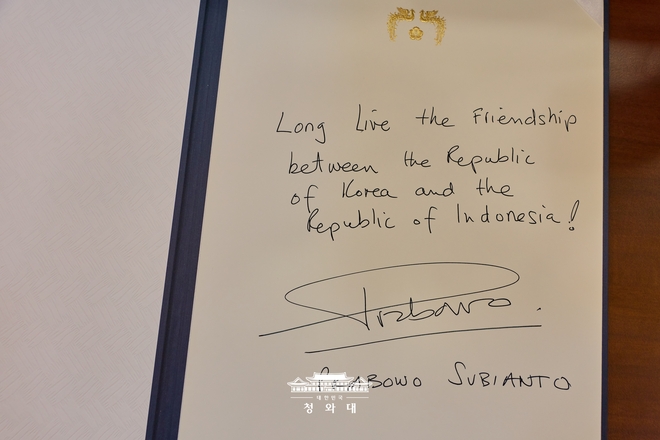 Long Live the Friendship
between the Republic
of Korea and the
Republic of Indonesia!
Prabowo
PRABOWO SUBIANTO
대한민국
청와대